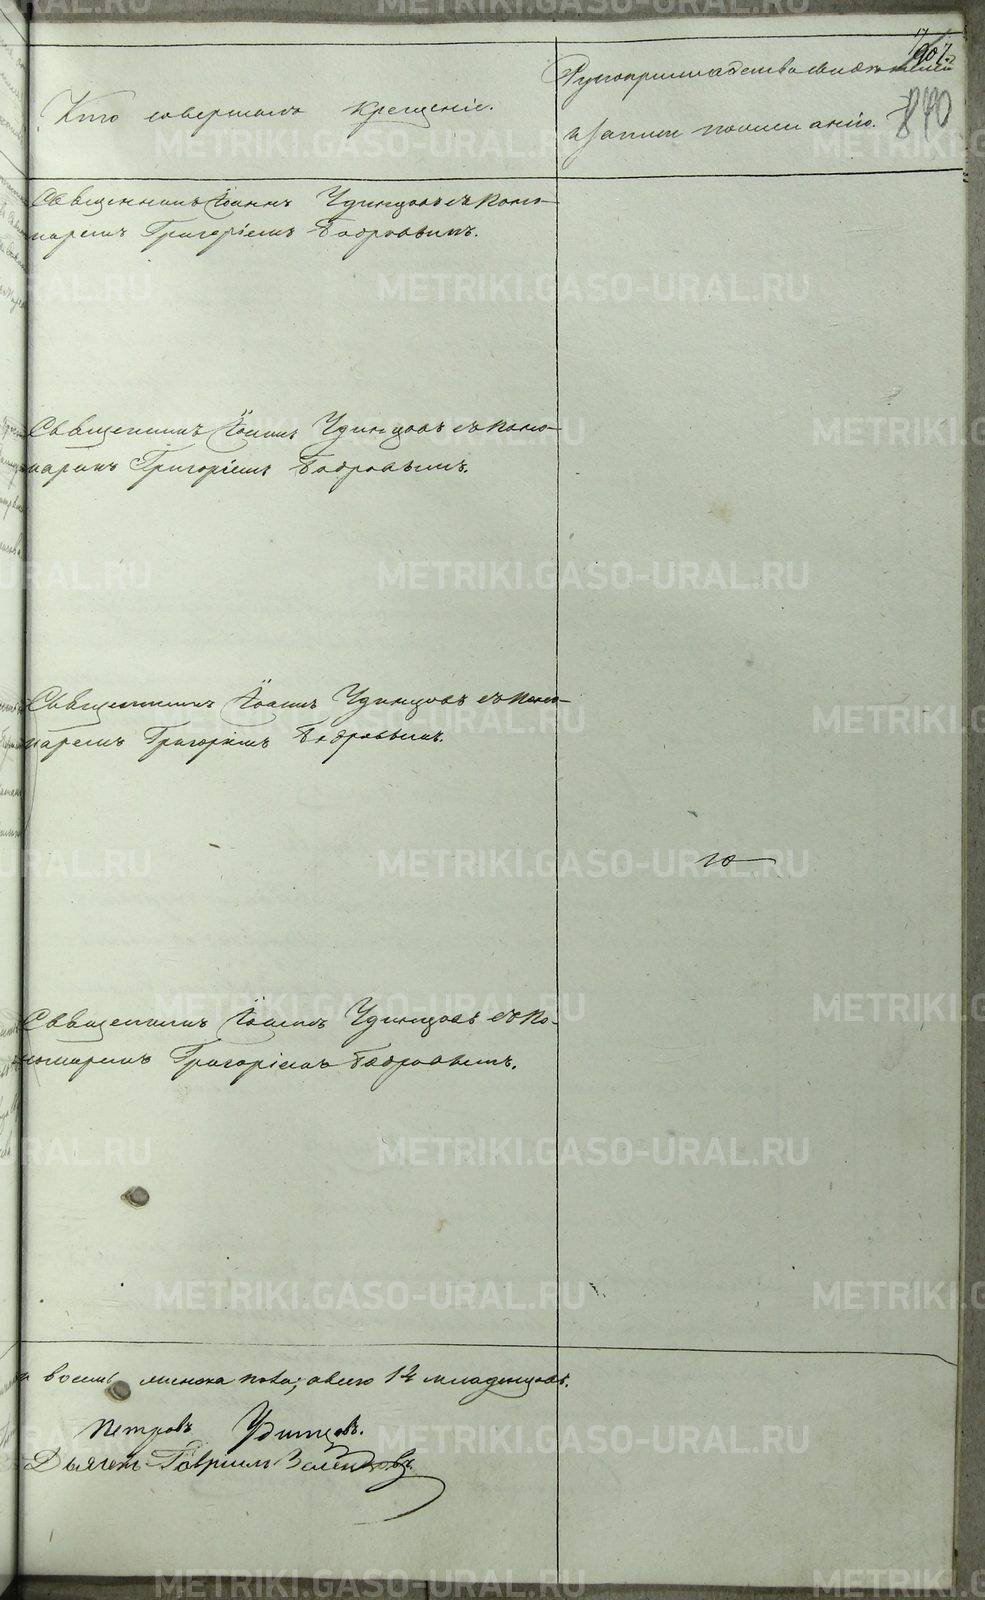 Кто совершалъ крещеніе.
Рукоприкладство свидѣтелей
записи по желанію.
870
Священникъ Іоаннъ Удинцовъ съ поно-
маремъ Григоріемъ Бобровымъ.
Священникъ Іоаннъ Удинцовъ съ поно-
маремъ Григоріемъ Бобровымъ.
Священникъ Іоаннъ Удинцовъ съ поно-
маремъ Григоріемъ Бобровымъ.
Священникъ Іоаннъ Удинцовъ съ по-
номаремъ Григоріемъ Бобровымъ.
восемь женска пола; обоего 14 младенцовъ.
Петровъ Удинцовъ.
Дьячекъ Гавріилъ
METRIKI.GASO-URAL.RU